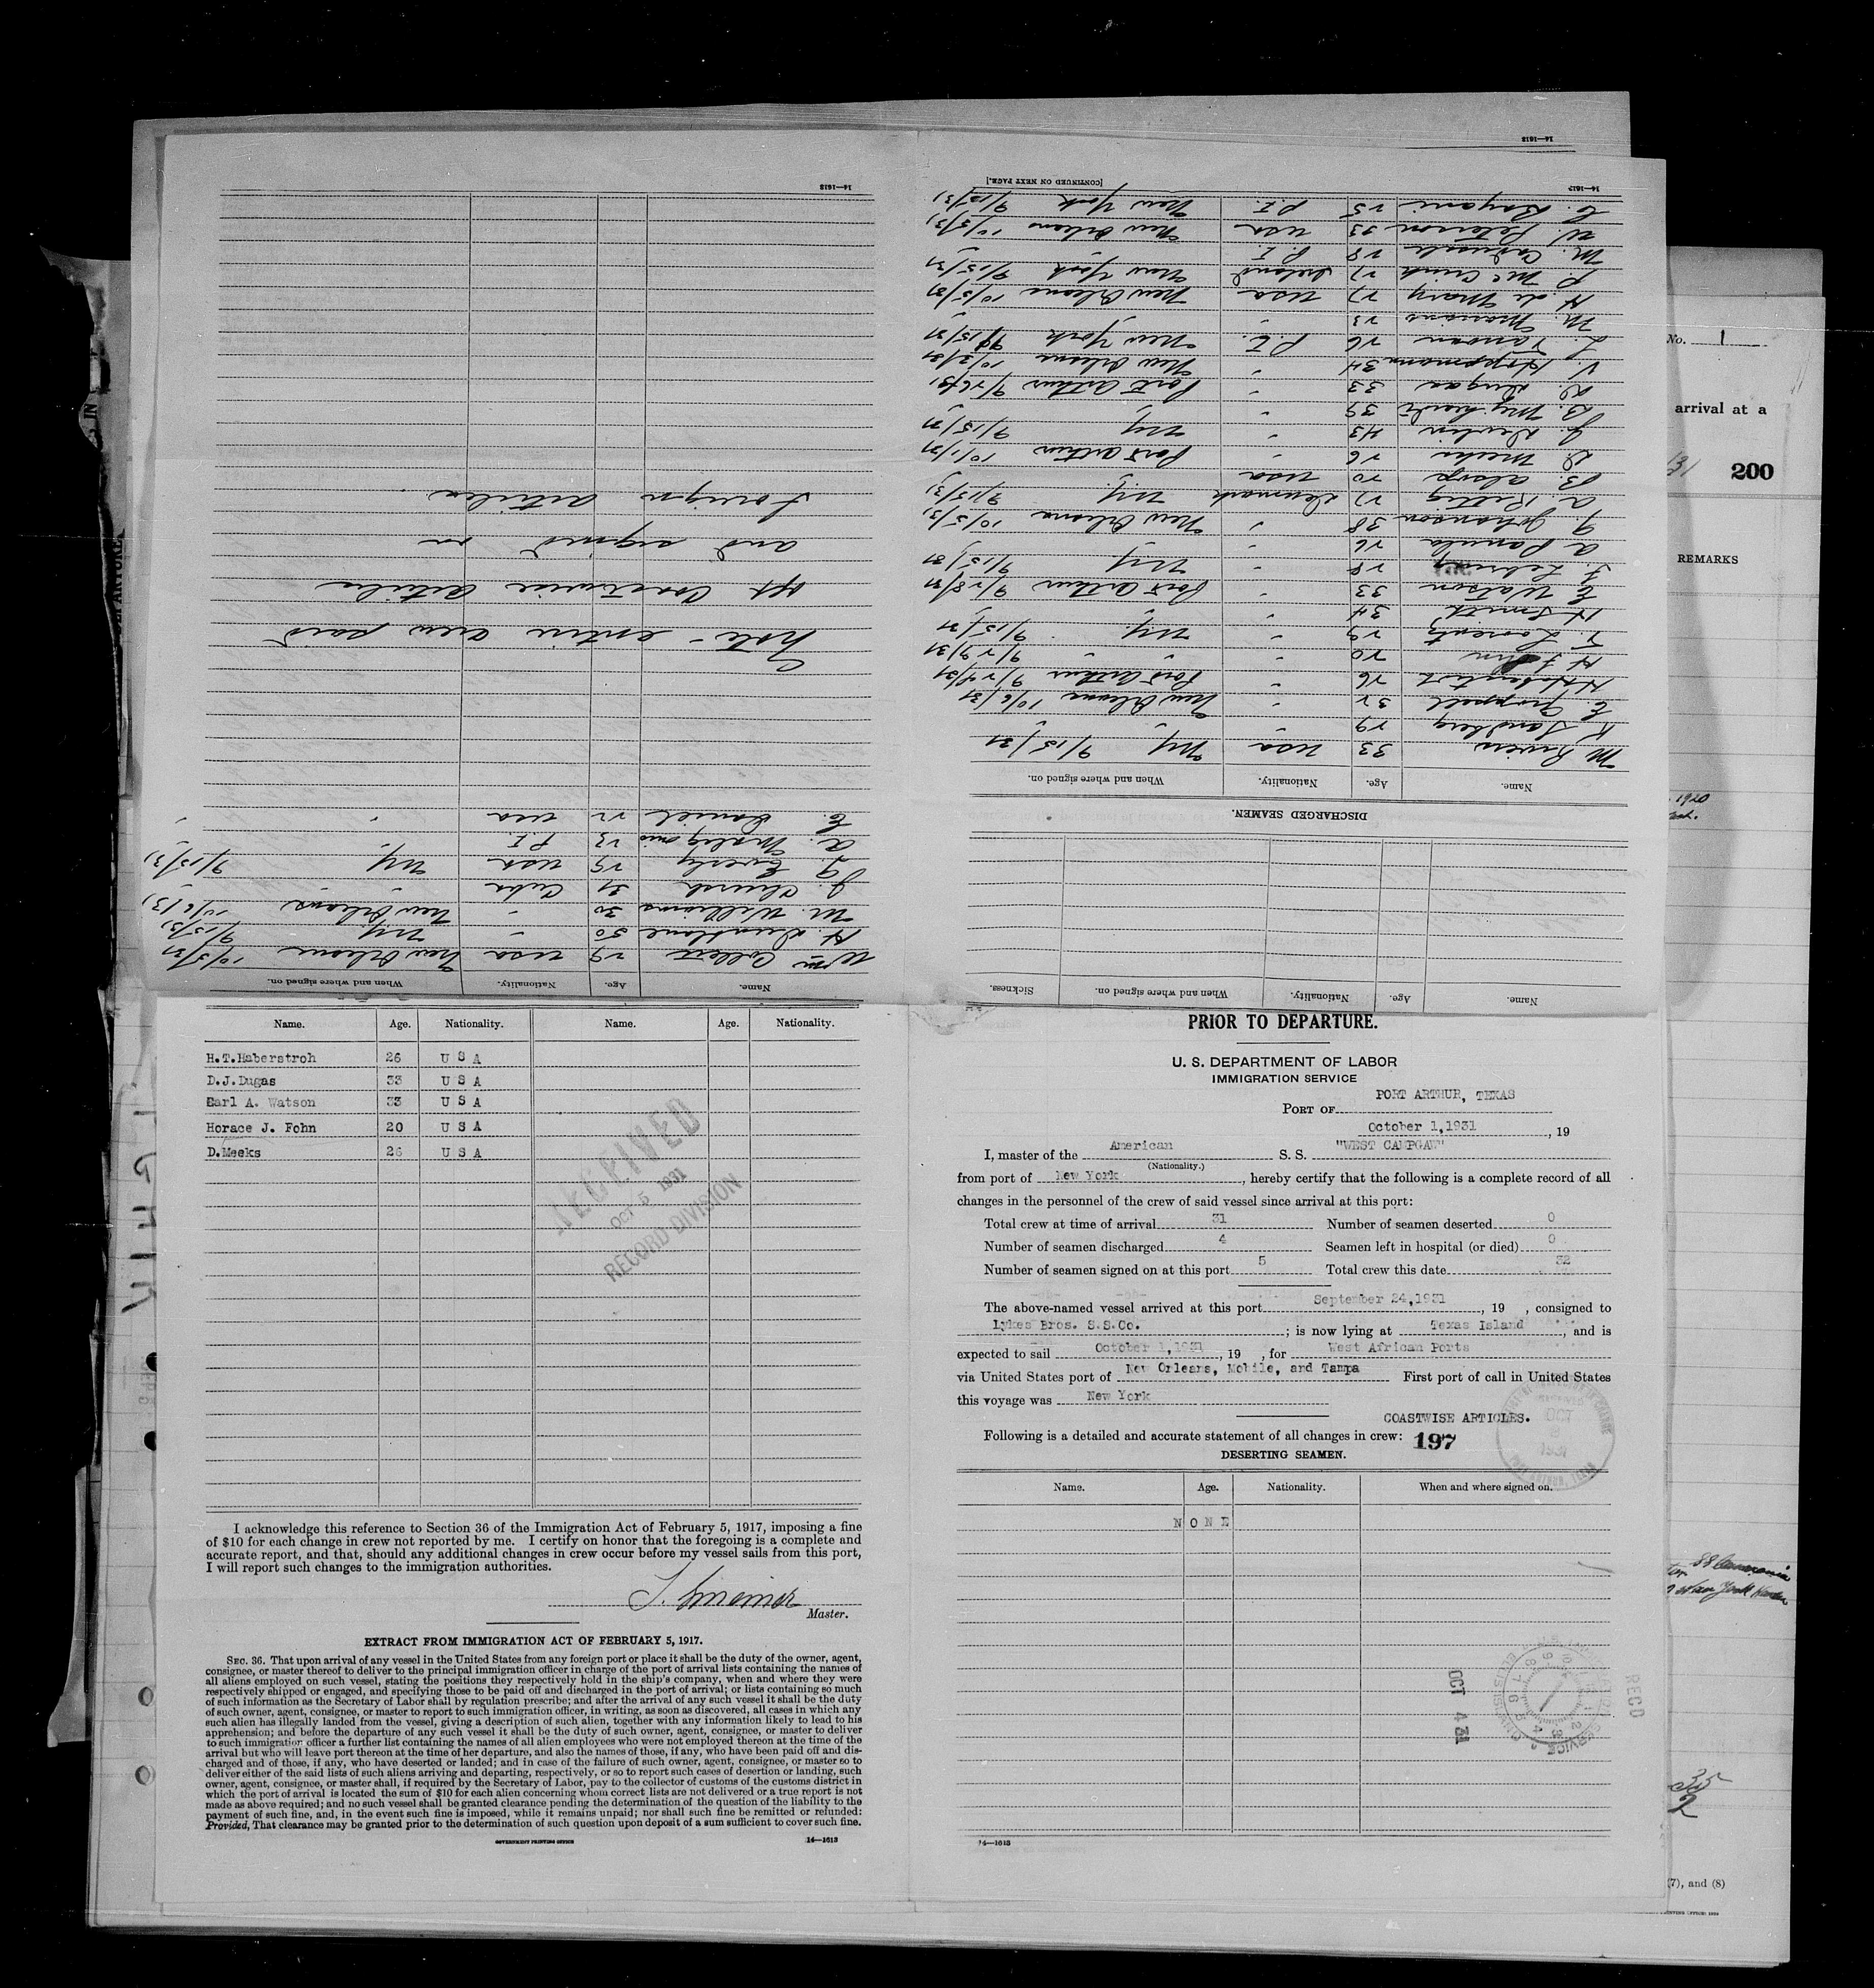 14—1613
Name.
Age.
Nationality.
When and where signed on.
Sickness.
DISCHARGED SEAMEN.
Name. Age. Nationality. When and where signed on.
M Rivers 33 USA NY 9/15/31
K Sandberg 29 " "
E Groppell 32 " New Orleans 10/6/31
H Haberstroh 26 " Port Arthur 9/24/31
H J Fohn 20 " " 9/29/31
F. Lorentz 29 " NY. 9/15/31
H Smith 34 " "
E Watson 33 " Port Arthur 9/28/31
28 " N.Y. 9/15/31
26 "
Johanson 38 " New Orleans 10/5/31
a. Rettig 27 Denmark N.Y. 9/15/31
B. Alsop 20 USA "
D Meeks 26 " Port Arthur 10/1/31
J. Devlin 43 " NY 9/15/31
39 " "
D. Dugas 33 " Port Arthur 9/26/31
V. Hoppmann 34 " New Orleans 10/2/31
26 P.I. New York 9/15/31
M. 23 " "
H. de Mary 27 USA New Orleans 10/5/31
P. 27 Ireland New York 9/15/31
M. 28 P.I. "
W Peterson 33 USA New Orleans 10/5/31
C. Bayani 25 P.I. New York 9/15/31
[CONTINUED ON NEXT PAGE.]
14—1613
Name. Age. Nationality. When and where signed on.
Wm Collett 29 USA New Orleans 10/5/31
H. Dunstane 50 " NY 9/15/31
M. Williams 30 " New Orleans 10/6/31
J. Church 31 Cuba " "
Everly 29 USA NY 9/15/31
a. 23 P.I. "
E. Daniel 22 USA " "
Note - entire crew paid
off Coastwise articles
and signed on
Foreign articles.
14—1613
Name. Age. Nationality. Name. Age. Nationality.
H.T.Haberstroh 26 U S A
D.J.Dugas 33 U S A
Earl A. Watson 33 U S A
Horace J. Fohn 20 U S A
D.Meeks 26 U S A
RECEIVED
OCT 5 1931
RECORD DIVISION
I acknowledge this reference to Section 36 of the Immigration Act of February 5, 1917, imposing a fine
of $10 for each change in crew not reported by me. I certify on honor that the foregoing is a complete and
accurate report, and that, should any additional changes in crew occur before my vessel sails from this port,
I will report such changes to the immigration authorities.
Master.
EXTRACT FROM IMMIGRATION ACT OF FEBRUARY 5, 1917.
SEC. 36. That upon arrival of any vessel in the United States from any foreign port or place it shall be the duty of the owner, agent,
consignee, or master thereof to deliver to the principal immigration officer in charge of the port of arrival lists containing the names of
all aliens employed on such vessel, stating the positions they respectively hold in the ship's company, when and where they were
respectively shipped or engaged, and specifying those to be paid off and discharged in the port of arrival; or lists containing so much
of such information as the Secretary of Labor shall by regulation prescribe; and after the arrival of any such vessel it shall be the duty
of such owner, agent, consignee, or master to report to such immigration officer, in writing, as soon as discovered, all cases in which any
such alien has illegally landed from the vessel, giving a description of such alien, together with any information likely to lead to his
apprehension; and before the departure of any such vessel it shall be the duty of such owner, agent, consignee, or master to deliver
to such immigration officer a further list containing the names of all alien employees who were not employed thereon at the time of the
arrival but who will leave port thereon at the time of her departure, and also the names of those, if any, who have been paid off and dis-
charged and of those, if any, who have deserted or landed; and in case of the failure of such owner, agent, consignee, or master so to
deliver either of the said lists of such aliens arriving and departing, respectively, or so to report such cases of desertion or landing, such
owner, agent, consignee, or master shall, if required by the Secretary of Labor, pay to the collector of customs of the customs district in
which the port of arrival is located the sum of $10 for each alien concerning whom correct lists are not delivered or a true report is not
made as above required; and no such vessel shall be granted clearance pending the determination of the question of the liability to the
payment of such fine, and, in the event such fine is imposed, while it remains unpaid; nor shall such fine be remitted or refunded:
Provided, That clearance may be granted prior to the determination of such question upon deposit of a sum sufficient to cover such fine.
GOVERNMENT PRINTING OFFICE 14—1613
PRIOR TO DEPARTURE.
U. S. DEPARTMENT OF LABOR
IMMIGRATION SERVICE
PORT OF PORT ARTHUR, TEXAS
October 1,1931, 19
I, master of the American S. S. "WEST CAMPGAW"
(Nationality.)
from port of New York, hereby certify that the following is a complete record of all
changes in the personnel of the crew of said vessel since arrival at this port:
Total crew at time of arrival 31 Number of seamen deserted 0
Number of seamen discharged 4 Seamen left in hospital (or died) 0
Number of seamen signed on at this port 5 Total crew this date 32
The above-named vessel arrived at this port September 24,1931, 19 , consigned to
Lykes Bros. S.S.Co.; is now lying at Texas Island, and is
expected to sail October 1,1931, 19 , for West African Ports
via United States port of New Orleans, Mobile, and Tampa First port of call in United States
this voyage was New York
COASTWISE ARTICLES.
Following is a detailed and accurate statement of all changes in crew: 197
DESERTING SEAMEN.
Name. Age. Nationality. When and where signed on.
N O N E
OCT 4 31
RECD
14—1613
No. 1
arrival at a
31 200
REMARKS
1920
35
2
(7), and (8)